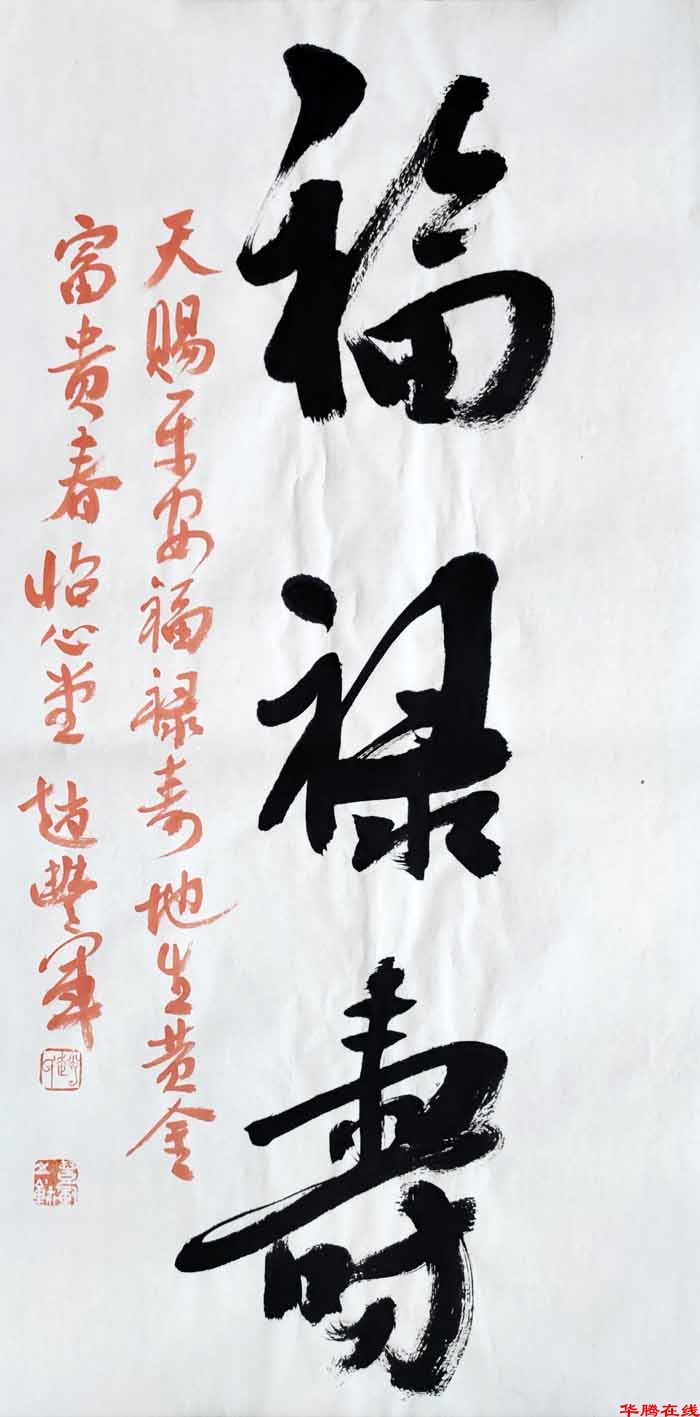 福禄寿
天赐平安福禄寿地生黄金
富贵春怡心堂赵丰军
华腾在线